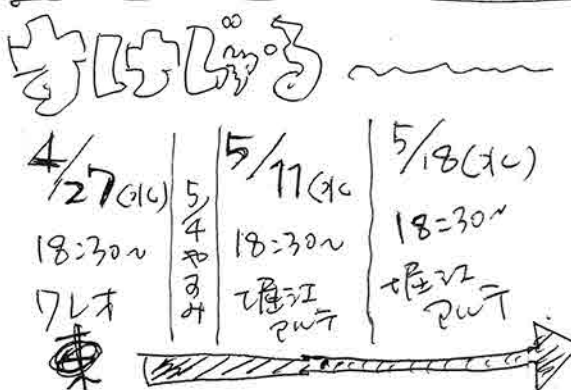 すけじゅーる
4/27(水)
18:30~
ワレオ
東
5/4やすみ
5/11(水
18:30~
堀江
アルテ
5/18(水)
18:30~
堀江
アルテ